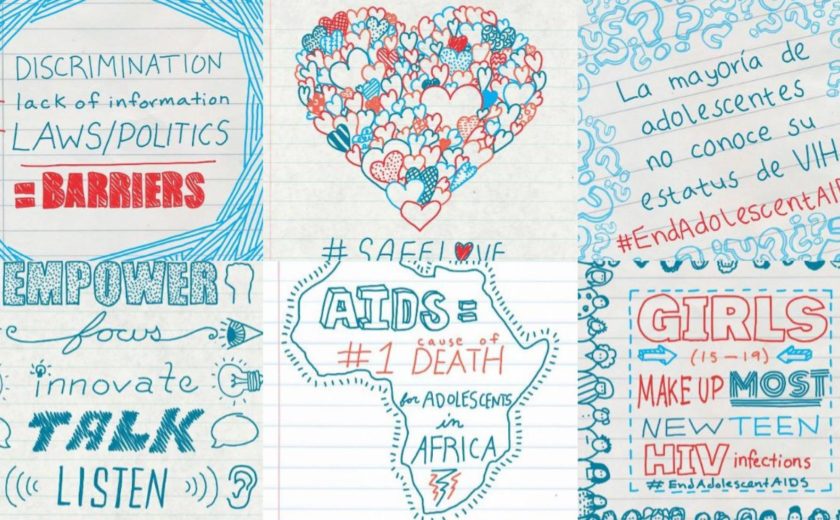 DISCRIMINATION
lack of information
LAWS/POLITICS
= BARRIERS
# SAFELOVE
La mayoría de
adolescentes
no conoce su
estatus de VIH
#EndAdolescentAID
EMPOWER
focus
innovate
TALK
LISTEN
AIDS =
#1 cause of DEATH
for ADOLESCENTS
in
AFRICA
GIRLS
(15-19)
MAKE UP MOST
NEW TEEN
HIV infections
#EndAdolescentAIDS